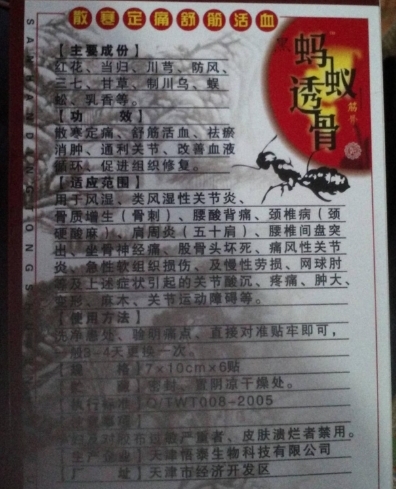 散寒定痛舒筋活血
蚂蚁
透骨
【主要成份】
红花、当归、川芎、防风、
三七、甘草、制川乌、蜈
蚣、乳香等。
【功 效】
散寒定痛、舒筋活血、祛瘀
消肿、通利关节、改善血液
循环、促进组织修复。
【适应范围】
用于风湿、类风湿性关节炎、
骨质增生(骨刺)、腰酸背痛、颈椎病(颈
硬酸麻)、肩周炎(五十肩)、腰椎间盘突
出、坐骨神经痛、股骨头坏死、痛风性关节
炎、急性软组织损伤、及慢性劳损、网球肘
等及上述症状引起的关节酸沉、疼痛、肿大、
变形、麻木、关节运动障碍等。
【使用方法】
洗净患处、验明痛点、直接对准贴牢即可,
3-4天更换一次。
【规 格】7×10cm×6贴
【贮 藏】密封、置阴凉干燥处。
【执行标准】Q/TWT008-2005
【注意事项】
妇及对胶布过敏严重者、皮肤溃烂者禁用。
生产企业】天津悟泰生物科技有限公司
【厂 址】天津市经济开发区